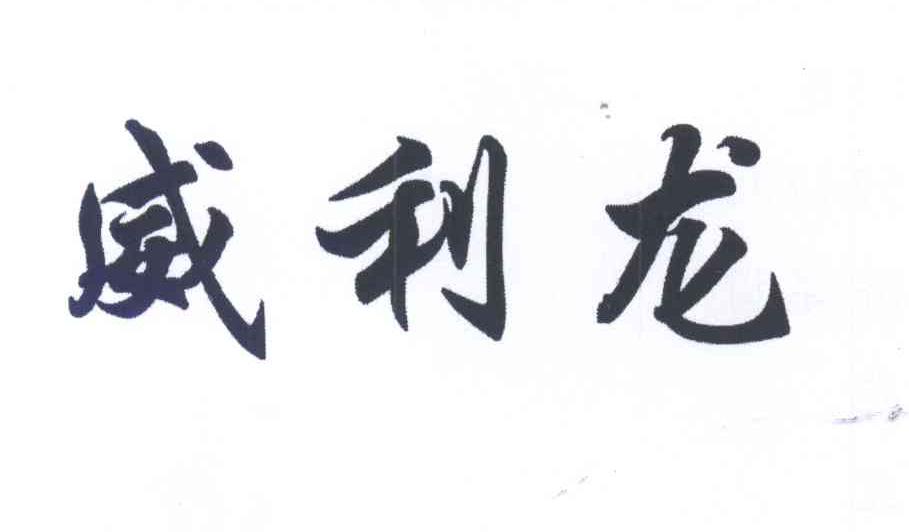 威利龙